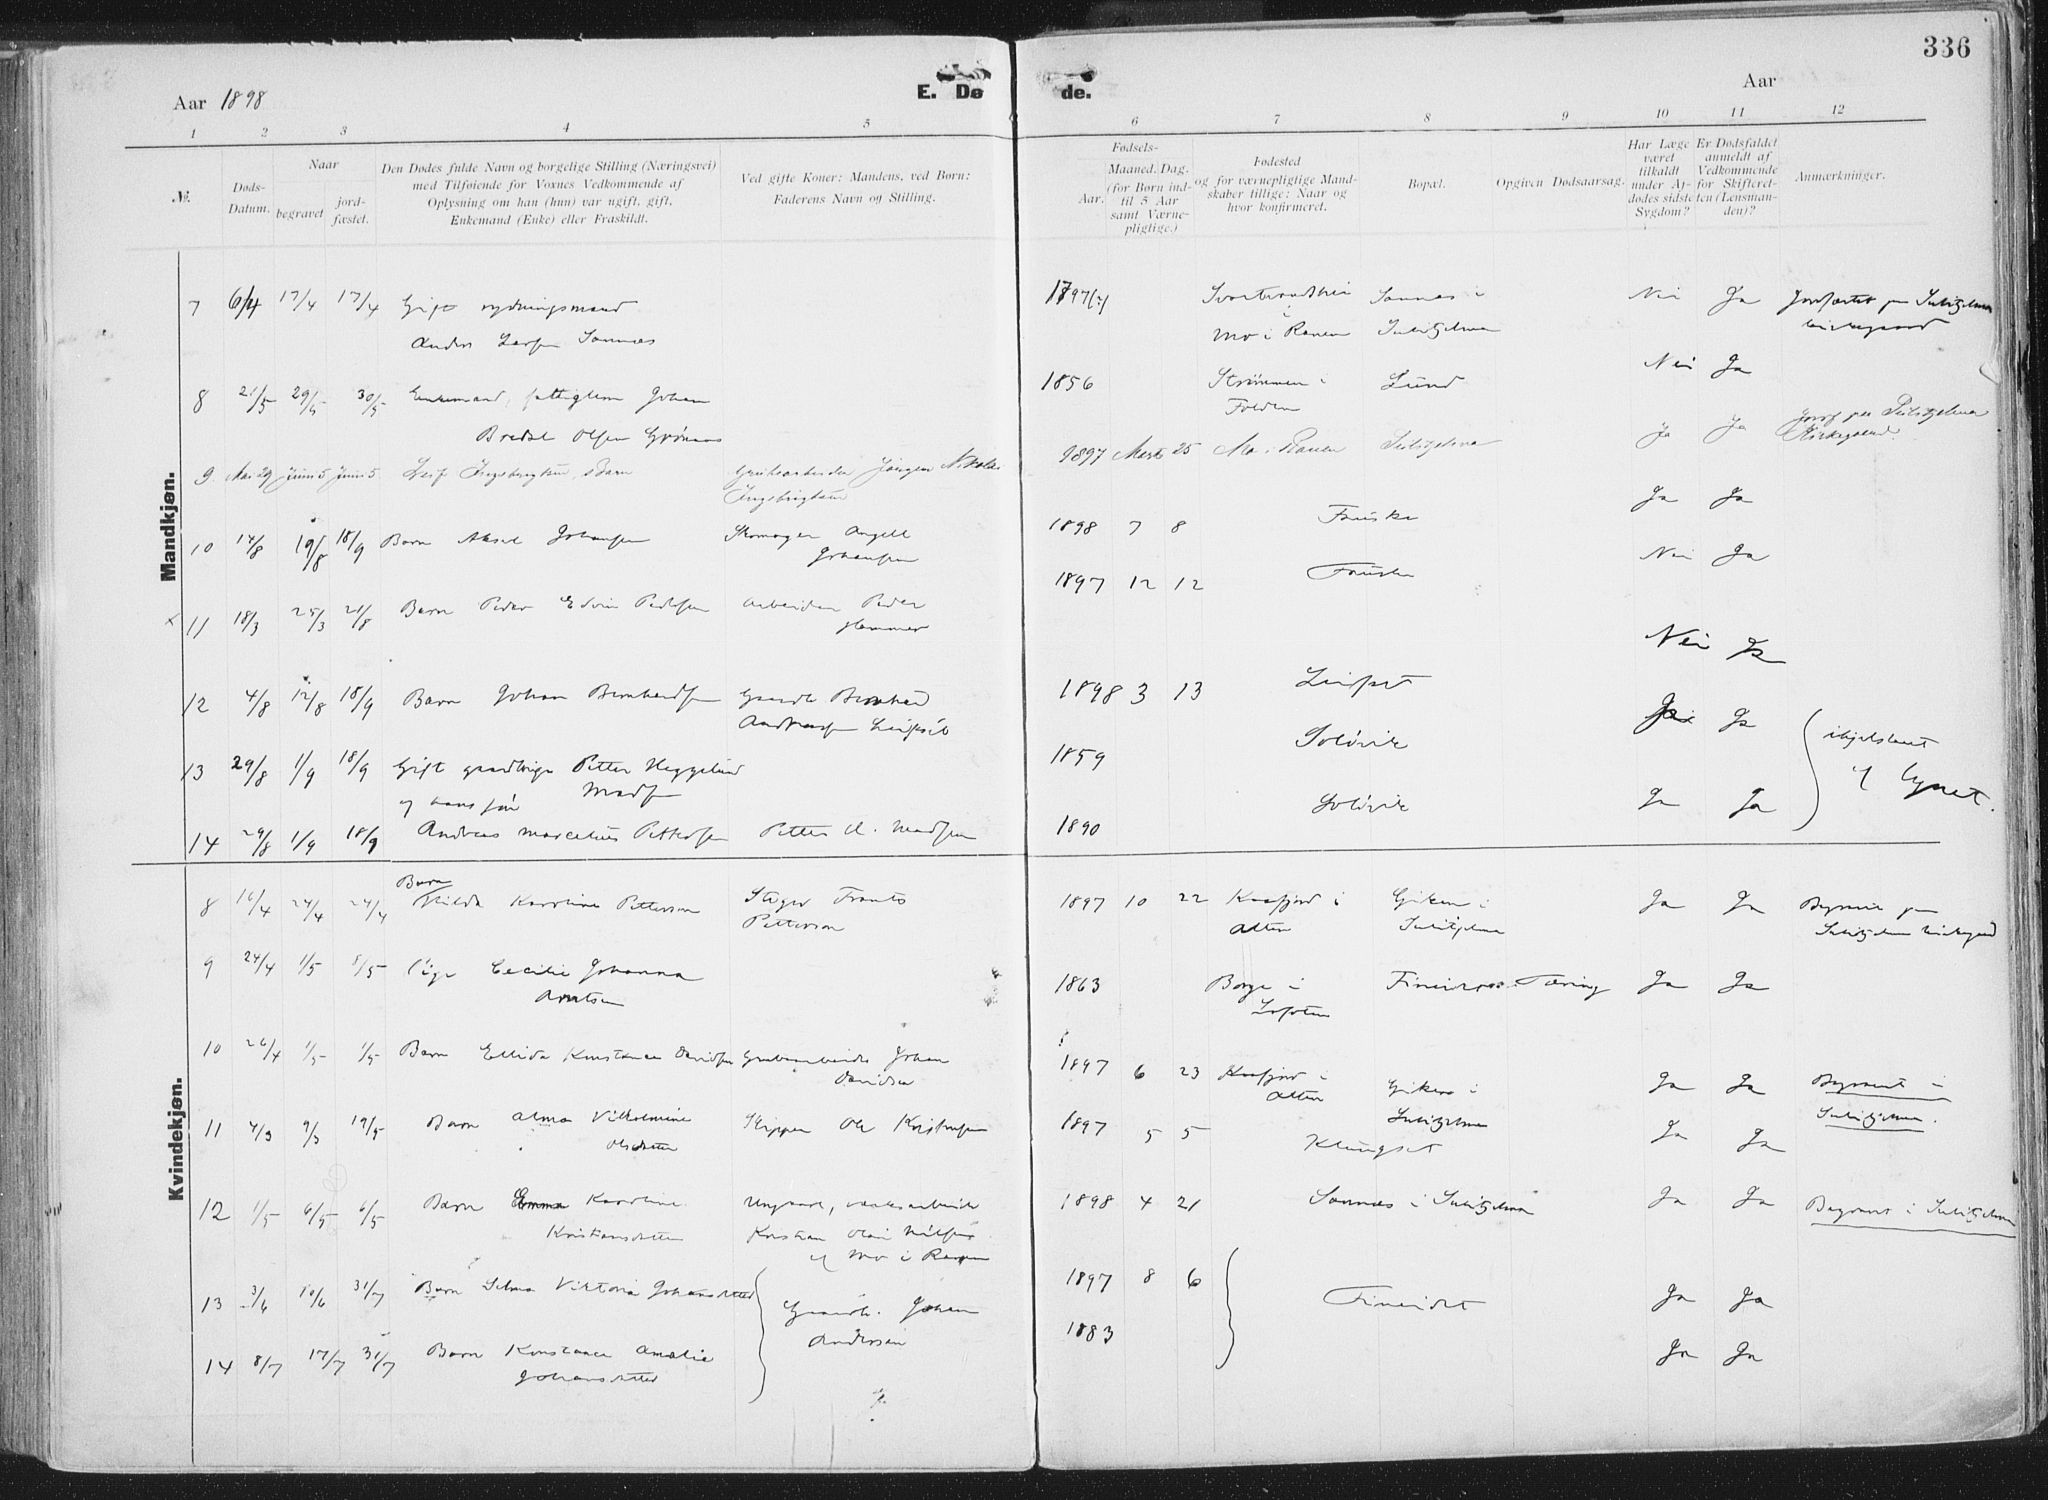 336
Aar 1898
E. Døde.
Aar
1 2 3 4 5 6 7 8 9 10 11 12
№.
Døds-Datum.
Naar
begravet
jord-fæstet.
Den Dødes fulde Navn og borgelige Stilling (Næringsvei)
med Tilføiende for Voxnes Vedkommende af
Oplysning om han (hun) var ugift, gift,
Enkemand (Enke) eller Fraskilt.
Ved gifte Koner: Mandens, ved Børn:
Faderens Navn og Stilling.
Fødsels-
Aar.
Maaned. Dag.
(for Børn ind-
til 5 Aar
samt Værne-
pligtige.)
Fødested
og for værnepligtige Mand-
skaber tillige: Naar og
hvor konfirmeret.
Bopæl.
Opgiven Dødsaarsag.
Har Læge
været
tilkaldt
under Af-
dødes sidste
Sygdom?
Er Dødsfaldet
anmeldt af
Vedkommende
for Skifteret-
ten (Lensman-
den)?
Anmærkninger.
Mandkjøn.
7 6/4 17/4 17/4 Gift rydningsmand Nei Ja
Anders Larsen Sannæs Mo i Ranen Sulitjelma
8 21/5 29/5 30/5 Enkemand, fattiglem Johan 1856 Strømmen i Lund Nei Ja
Bredal Olsen Folden
9 Mai 29 Juni 5 Juni 5 Leif Ingebrigtsen, Barn Grubearbeider Jørgen Nikolai 1897 Marts 25 Mo i Ranen Sulitjelma Ja Ja
Ingebrigtsen Kirkegaard
10 14/8 19/8 18/9 Barn Aksel Johansen Skomager Angell 1898 7 8 Fauske Ja Ja
Johansen
11 18/3 25/3 21/8 Barn Peder Edvin Pedersen Arbeider Peder 1897 12 12 Fauske Nei Ja
Hammer
12 4/8 12/8 18/9 Barn Johan Bernhardsen Gaardb Bernhard 1898 3 13 Leifset Nei Ja
Andreassen Leifset
13 29/8 1/9 18/9 Gift gaardbruger Petter Heggelund 1859 Soløvik Ja ihjelslaaet
Madsen af lynet.
og hans søn
14 29/8 1/9 18/9 Andreas Marcelius Pettersen Petter H. Madsen 1890 Soløvik Ja Ja
Kvindekjøn.
Barn
8 16/4 24/4 24/4 Hilda Karoline Petterson Stiger Frants 1897 10 22 Kaafjord i Giken i Ja Ja Begravet paa
Petterson Alten Sulitjelma Sulitjelma kirkegaard
9 24/4 1/5 8/5 Pige Cecilie Johanna 1863 Borge i Tæring Ja Ja
Arntsen Lofoten
10 26/4 1/5 1/5 Barn Ellida Konstance Davidsen Grubearbeider Johan 1897 6 23 Kaafjord i Giken i Ja Ja Begravet i
Davidsen Alten Sulitjelma Sulitjelma.
11 4/3 9/3 19/5 Barn Alma Vilhelmine Skipper Ole Kristensen 1897 5 5 Klungset Ja Ja
Olsdatter
12 1/5 6/5 6/5 Barn Emma Karoline Ungkarl, 1898 4 21 Sannæs i Sulitjelma Ja Ja Begravet i Sulitjelma
Kristiansdatter Kristian Olai
af Mo i Ranen
13 3/6 10/6 31/7 Barn Selma Viktoria Johansdatter Gaardb. Johan 1897 8 6 Fineidet Ja Ja
Andersen
14 8/7 17/7 31/7 Barn Konstance Amalie 1883 Ja Ja
Johansdatter